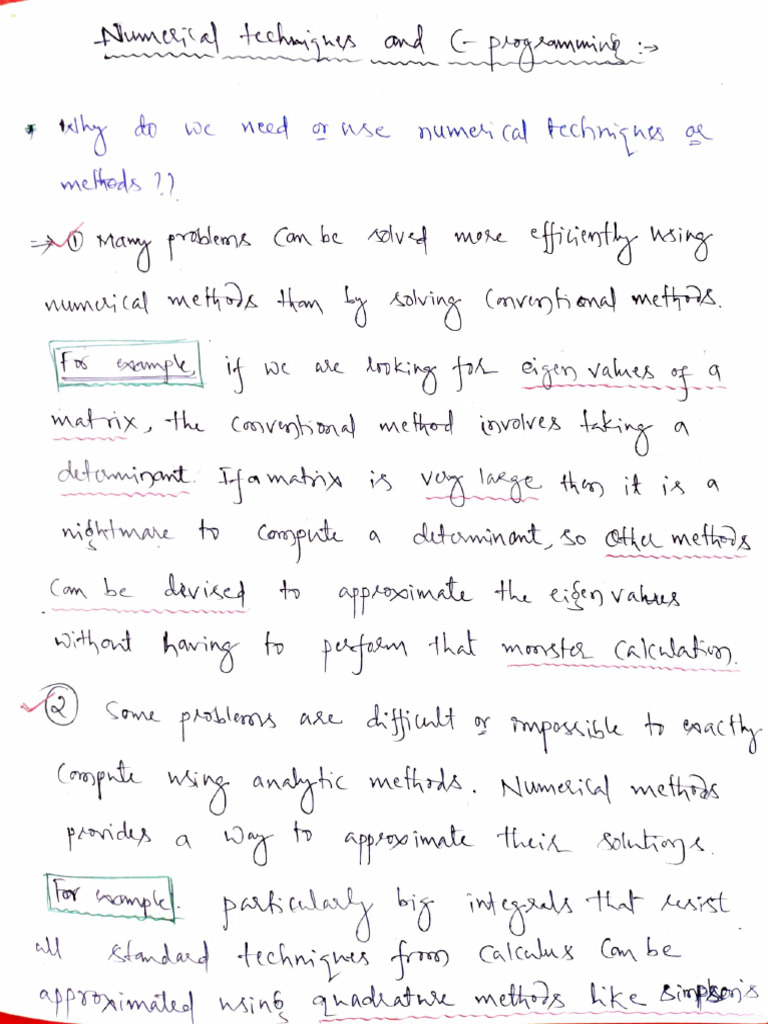 Numerical techniques and C-programming :→
* Why do we need or use numerical techniques or
methods ??
⇒ ① Many problems can be solved more efficiently using
numerical methods than by solving conventional methods.
For example, if we are looking for eigen values of a
matrix, the conventional method involves taking a
determinant. If a matrix is very large then it is a
nightmare to compute a determinant, so other methods
can be devised to approximate the eigen values
without having to perform that monster calculation.
② Some problems are difficult or impossible to exactly
compute using analytic methods. Numerical methods
provides a way to approximate their solutions.
For example. particularly big integrals that resist
all standard techniques from calculus can be
approximated using quadrature methods like simpson's